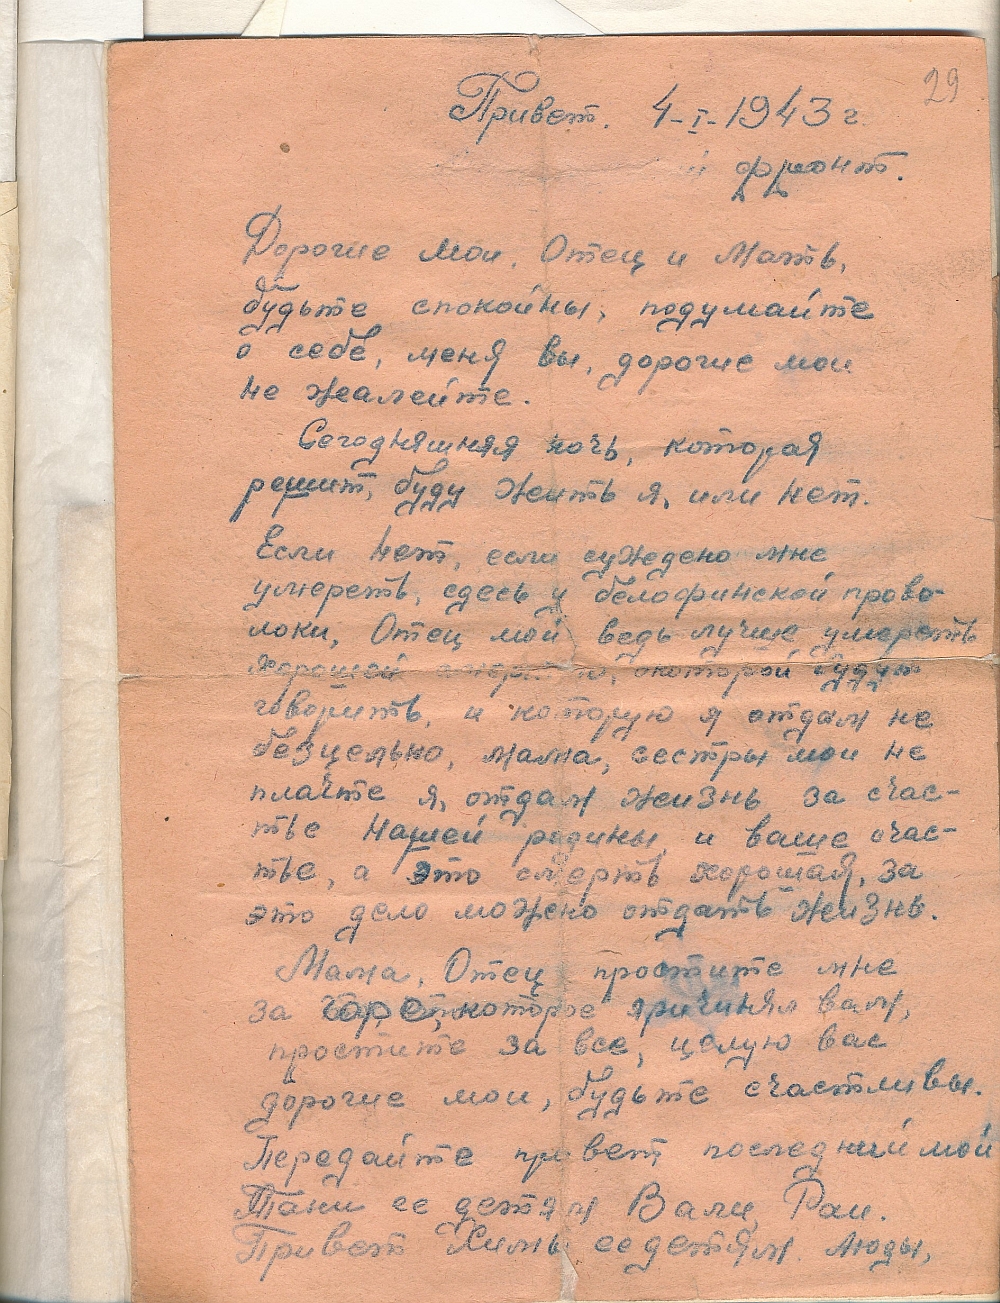 29
Привет. 4-I-1943 г.
фронт.
Дорогие мои, Отец и Мать,
будьте спокойны, подумайте
о себе, меня вы, дорогие мои
не жеалейте.
Сегодняшняя ночь, которая
решит, буду жить я, или нет.
Если нет, если суждено мне
умереть, сдесь у белофинской прово-
локи, Отец мой ведь лучше умереть
хорошей окоторой будут
говорить, и которую я отдам не
безцельно, мама, сестры мои не
плачте я, отдам жизнь за счас-
тье нашей родины, и ваше счас-
тье, а это смерть хорошая, за
это дело можено отдать жизнь.
Мама, Отец простите мне
за которое причинял вам,
простите за все, целую вас
дорогие мои, будьте счастливы.
Передайте привет последний мой
Тани ее детям Вали, Раи.
Привет Химы ее детям Люды,